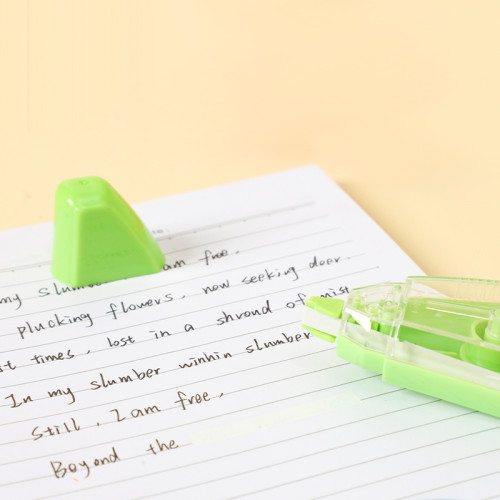 my slumber am free.
plucking flowers, now seeking deer.
t times, lost in a shroud of mist
In my slumber winhin slumber
still, I am free.
Boyond the